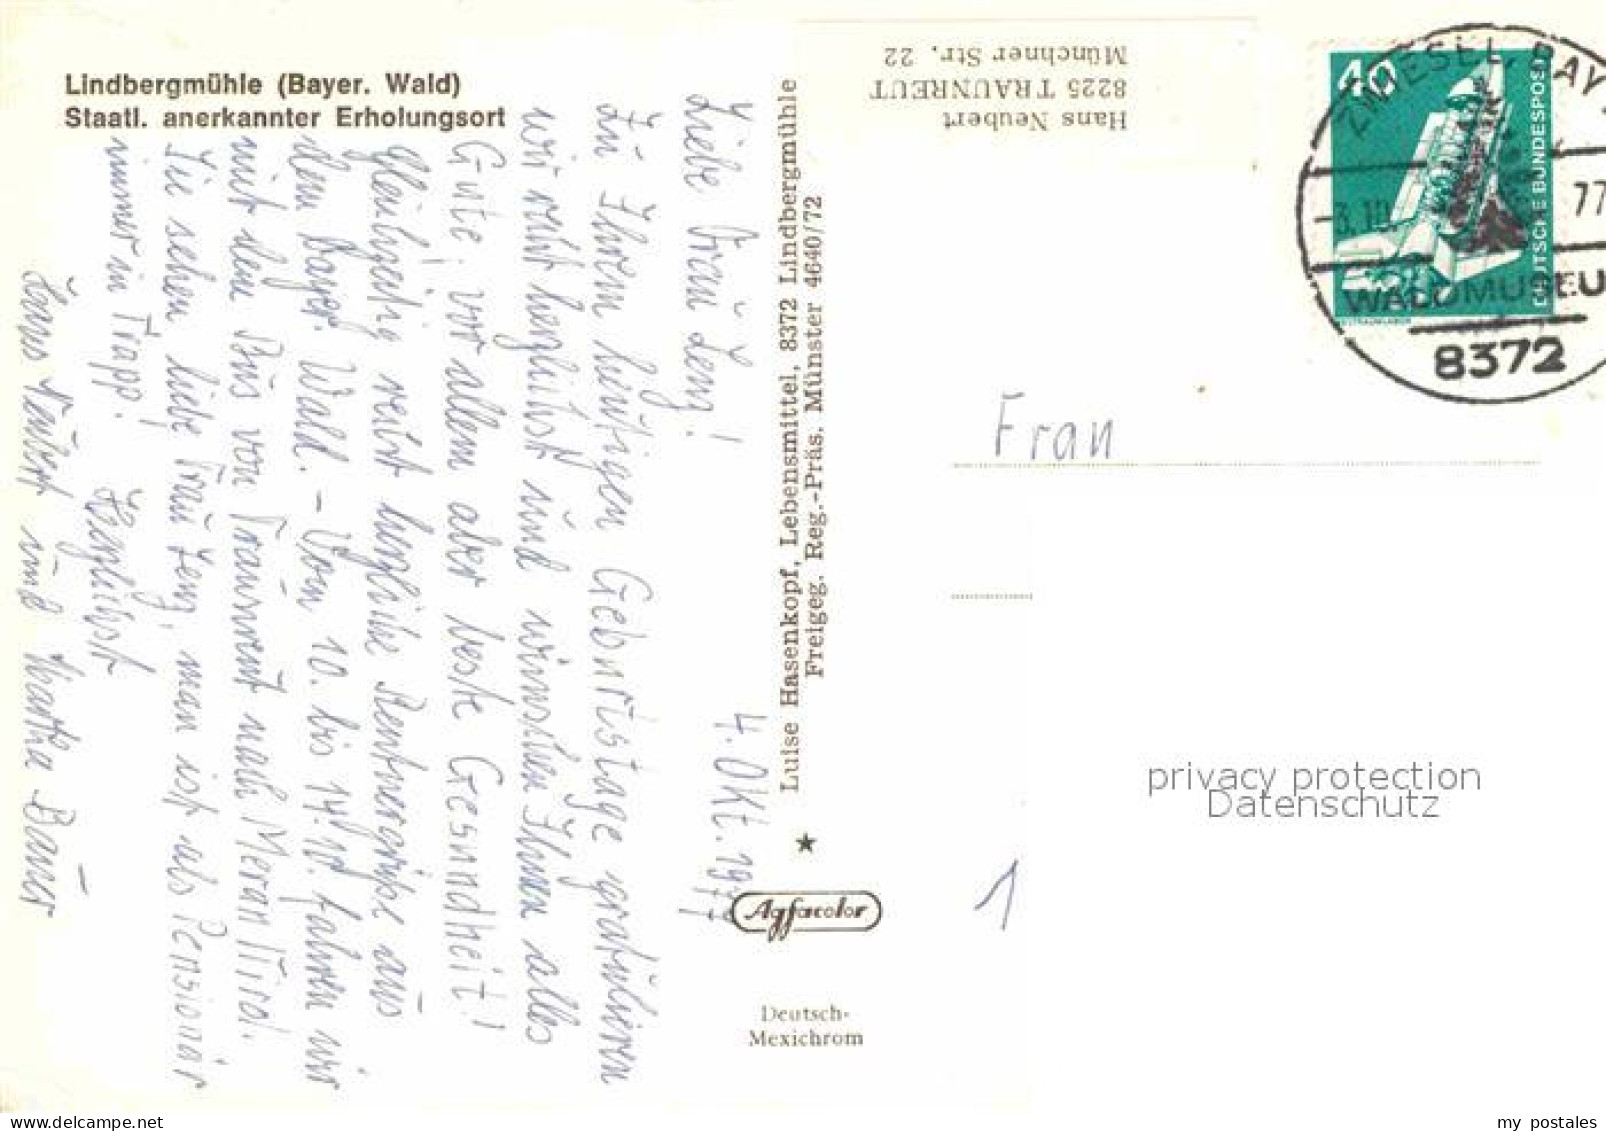 Lindbergmühle (Bayer. Wald)
Staatl. anerkannter Erholungsort
4. Okt. 1977
Liebe Frau Lenz!
Zu Ihrem heutigen Geburtstage gratulieren
wir recht herzlichst und wünschen Ihnen alles
Gute, vor allem aber beste Gesundheit!
Gleichzeitig recht herzliche Rentnergrüße aus
dem Bayer. Wald. – Vom 10. bis 14. 10. fahren wir
mit dem Bus von Traunreut nach Meran/Tirol.
Sie sehen, liebe Frau Lenz, man ist als Pensionär
immer in Trapp! Herzlichst
Hans Neubert und Martha Bauer
Luise Hasenkopf, Lebensmittel, 8372 Lindbergmühle
Freigeg. Reg.-Präs. Münster 4640/72
Agfacolor
Deutsch-
Mexichrom
Hans Neubert
8225 TRAUNREUT
Münchner Str. 22
40
DEUTSCHE BUNDESPOST
ZWIESEL, BAY
-3.10. 77
WALDMUSEU
8372
Frau
1
privacy protection
Datenschutz
my postales